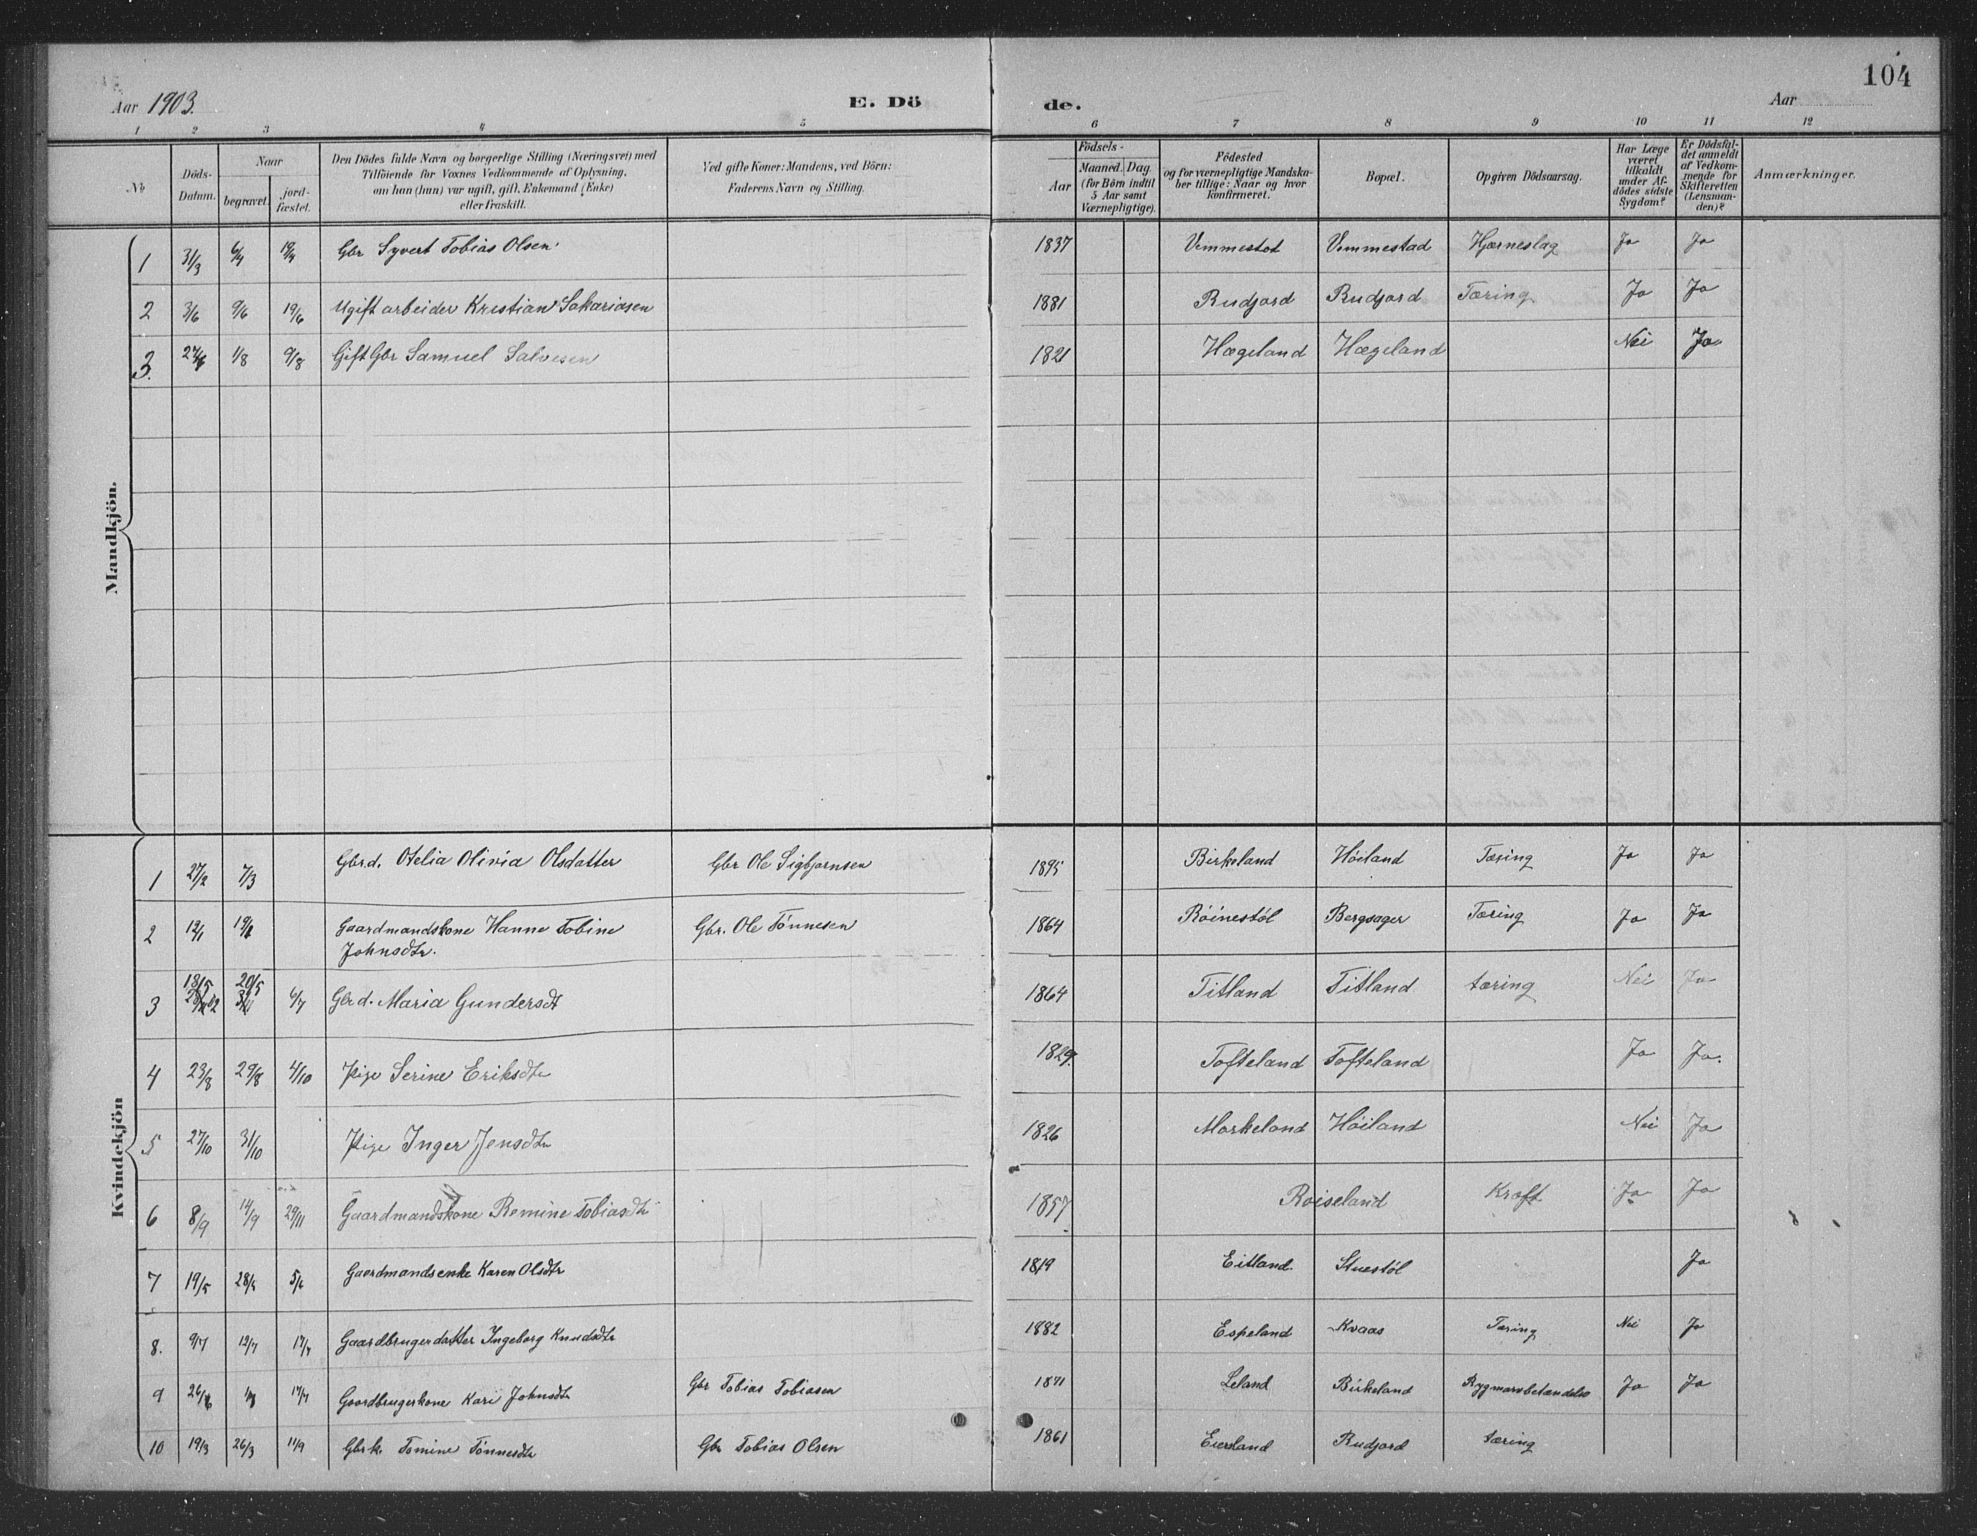 104
Aar 1903. E. Dö de. Aar
1 2 3 4 5 6 7 8 9 10 11 12
No
Döds-Datum.
Naar
begravet.
jord-fæstet.
Den Dödes fulde Navn og borgerlige Stilling (Næringsvei) med
Tilföiende for Voxnes Vedkommende af Oplysning,
om han (hun) var ugift, gift, Enkemand (Enke)
eller fraskilt.
Ved gifte Koner: Mandens, ved Börn:
Faderens Navn og Stilling.
Födsels-
Aar
Maaned. Dag.
(for Börn indtil
5 Aar samt
Værnepligtige).
Födested
og for værnepligtige Mandska-
ber tillige: Naar og hvor
konfirmeret.
Bopæl.
Opgiven Dödsaarsag.
Har Læge
været
tilkaldt
under Af-
dödes sidste
Sygdom?
Er Dödsfal-
det anmeldt
af Vedkom-
mende for
Skifteretten
(Lensman-
den)?
Anmærkninger.
Mandkjön.
1 31/3 6/4 19/4 Gbr Syvert Tobias Olsen 1837 Vemmestot Vemmestad Hjerneslag Ja Ja
2 3/6 9/6 19/6 Ugift arbeider Kristian Sakariasen 1881 Rudjord Rudjord Tæring Ja Ja
3. 1/8 9/8 Gift Gbr Samuel Salvesen 1821 Hægeland Hægeland Nei Ja
Kvindekjön
1 27/2 7/3 Gbrd. Otelia Olivia Olsdatter Gbr Ole Sigbjørnsen 1895 Birkeland Höiland Tæring Ja Ja
2 12/1 Gaardmandskone Hanne Tobine Gbr. Ole Tönnesen 1864 Röinestöl Bergsager Tæring Ja Ja
Johnsdtr.
13/5 20/5
3 4/7 Gbrd. Maria Gundersdt 1864 Titland Titland tæring Nei Ja
4 23/8 29/8 4/10 Pige Serine Eriksdtr 1829. Tofteland Tofteland Ja Ja.
5 27/10 31/10 Pige Inger Jensdtr 1826 Moskeland Höiland Nei Ja
6 8/9 14/9 29/11 Gaardmandskone Remine Tobiasdtr 1857 Roiseland Kræft Ja Ja
7 19/5 28/5 5/6 Gaardmandsenke Karen Olsdtr 1819 Eitland. Stuestöl Ja
8. 9/7 12/7 17/7 Gaardbrugerdatter Ingeborg Knudsdtr 1882 Espeland Kvaas Tæring Nei Ja
9 Gaardbrugerkone Kari Johnsdtr Gbr Tobias Tobiasen 1841 Leland Birkeland Rygmarvbetændelse Ja Ja
10 19/3 26/3 11/9 Gbrk. Tomine Tönnesdtr Gbr Tobias Olsen 1861 Eiersland Rudjord tæring